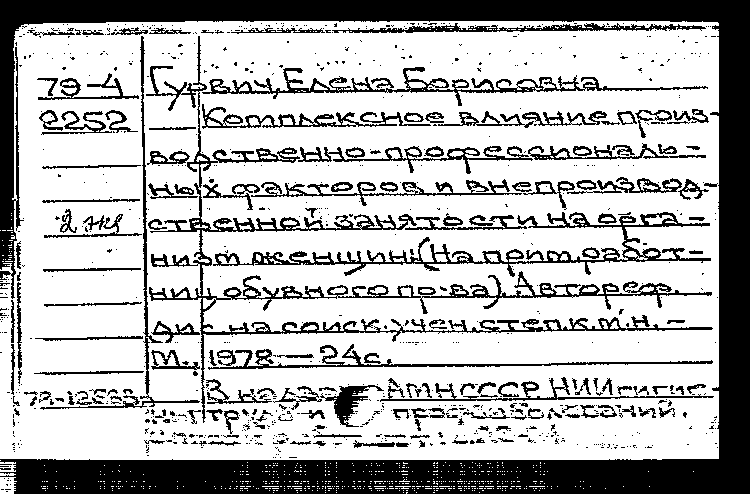 79-4 Гурвич, Елена Борисовна.
2252 Комплексное влияние произ-
водственно-профессиональ-
ных факторов и внепроизвод-
2 экз ственной занятости на орга-
низм женщины (На прим. работ-
ниц обувного пр-ва). Автореф.
дис. на соиск. учен. степ. к.м.н. -
М., 1978. - 24с.
В надзаг. АМН СССР НИИ гигие-
ны труда и профзаболеваний.